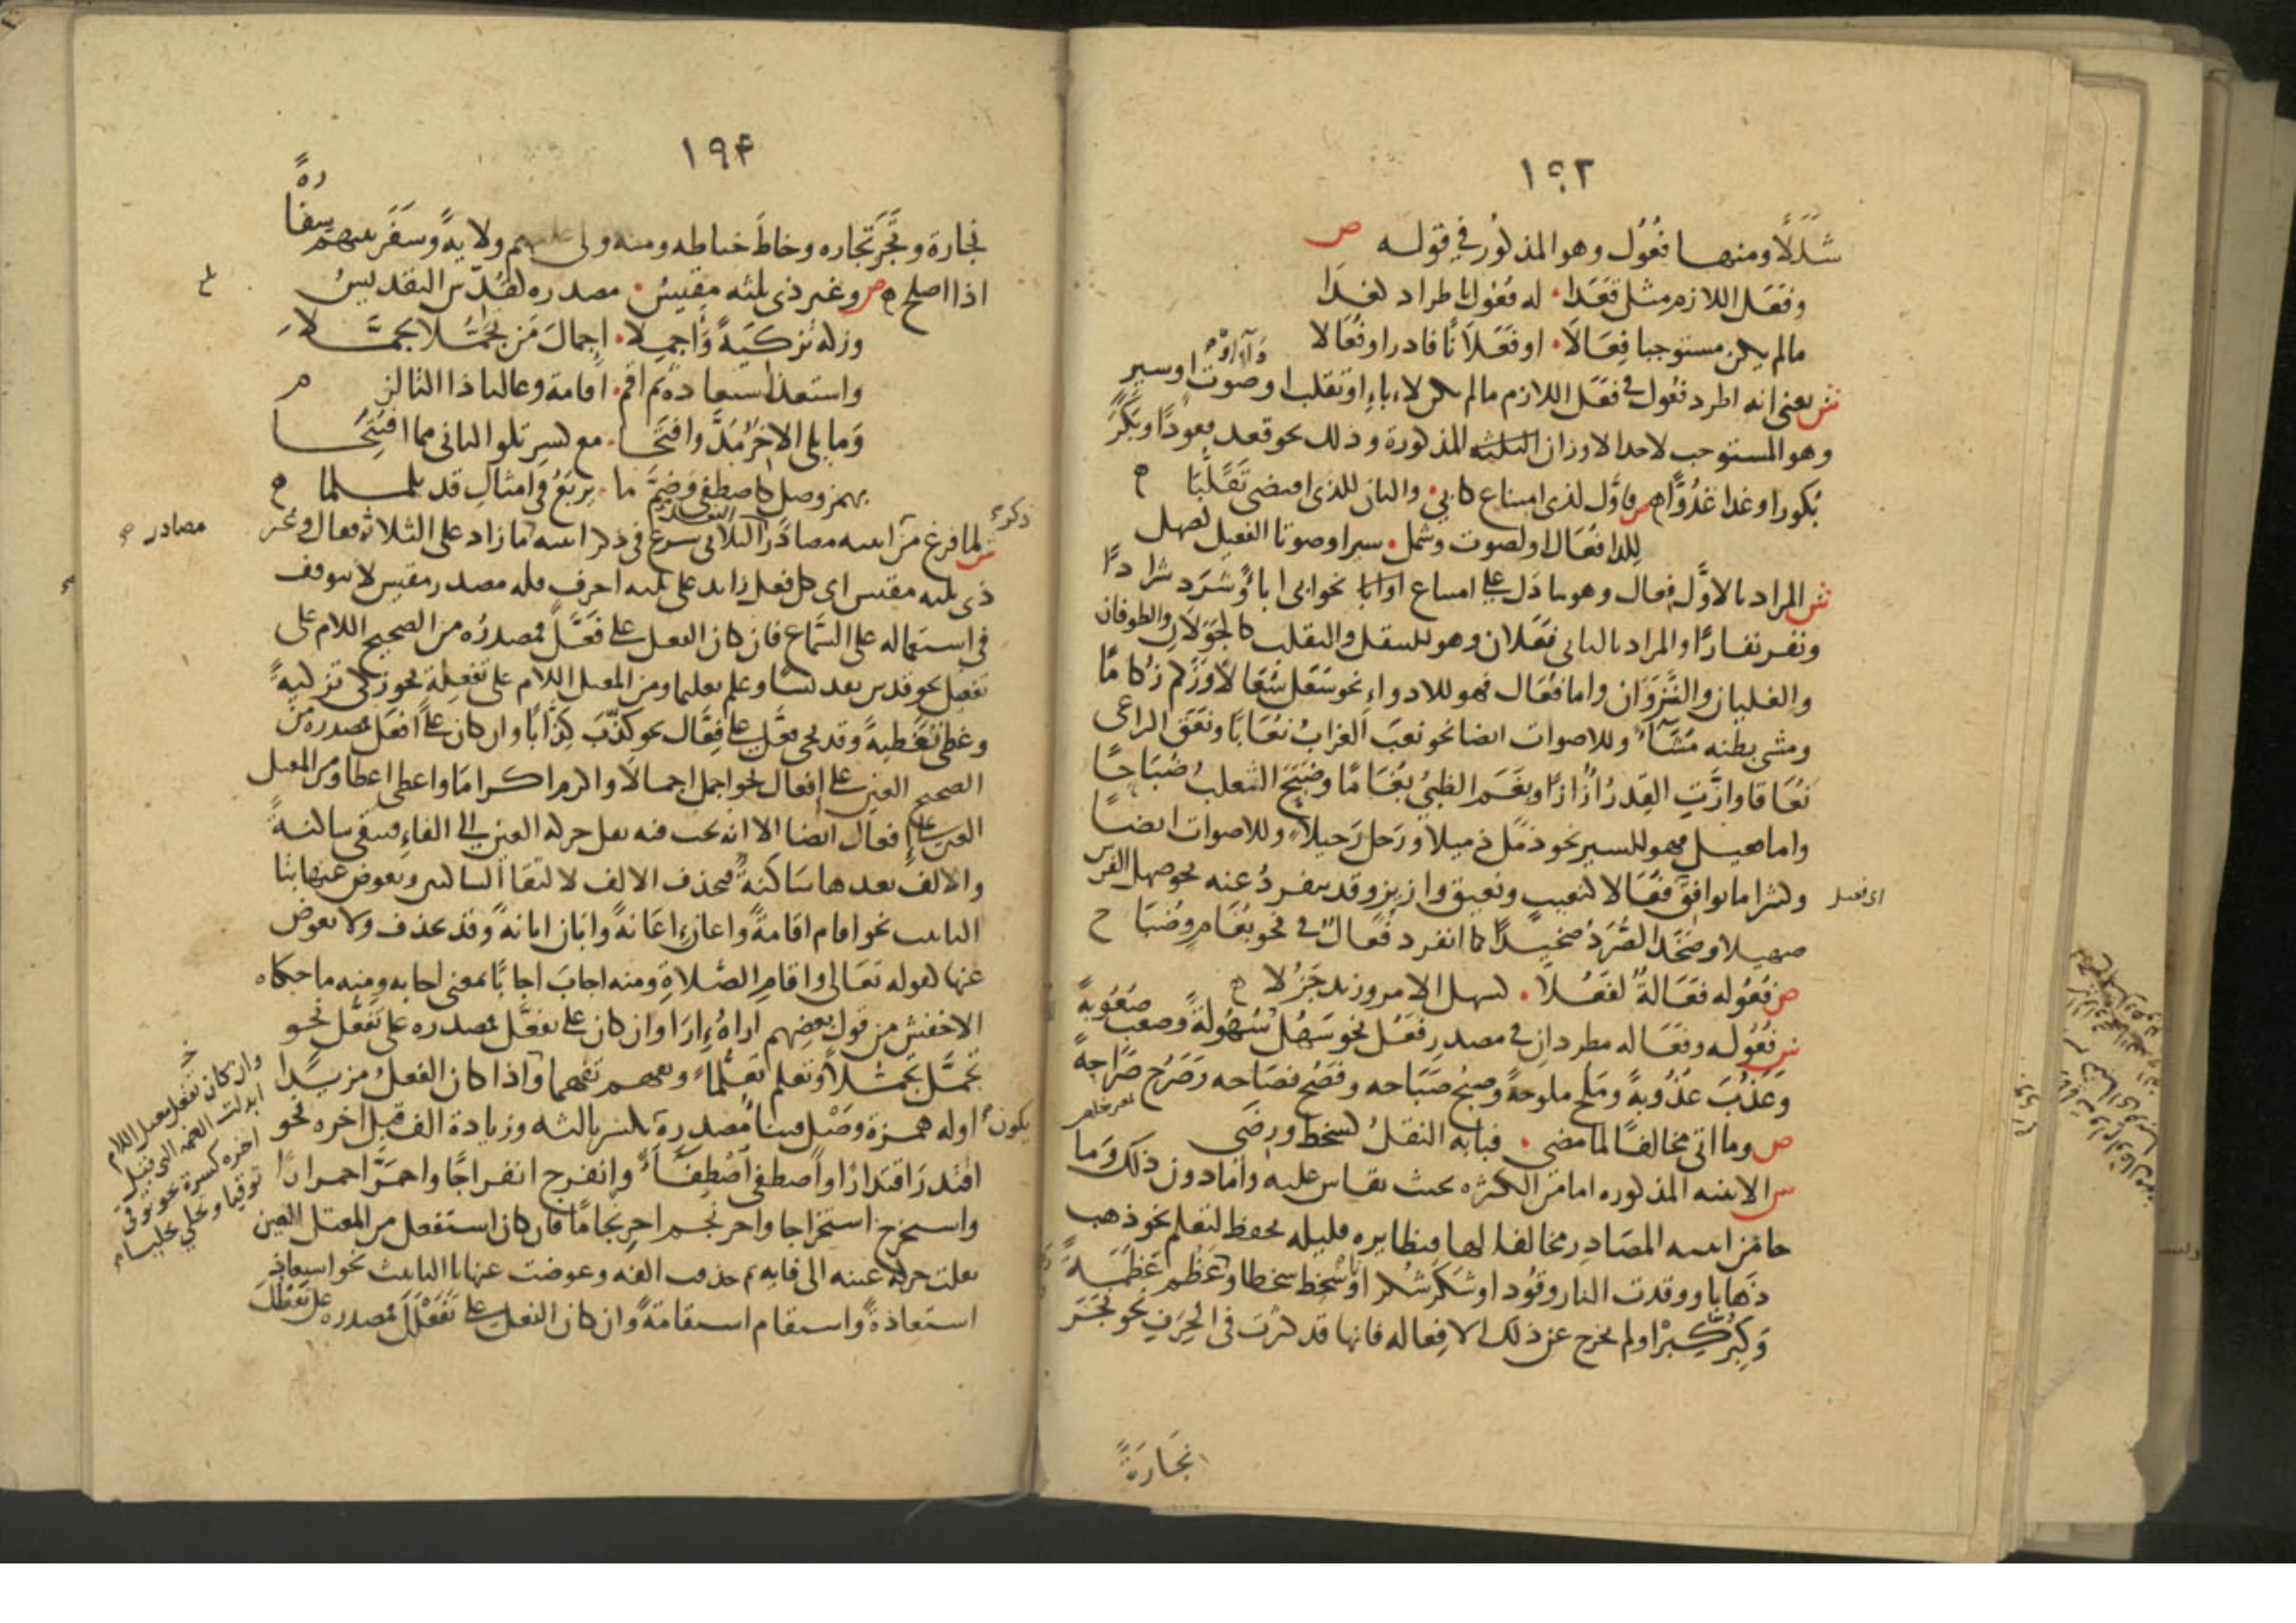 ١٩٣
شللا ومنها فعول وهو المذكور في قوله ص
وفعل اللازم مثل قعدا له فعول باطراد كغدا
مالم يكن مستوجبا فعالا او فعلانا فادر او فعالا
ش يعني انه اطرد فعول في فعل اللازم مالم يكن لاباء او تقلب او صوت او سير
وهو المستوجب لاحد الاوزان الثلثة المذكورة وذلك نحو قعد قعودا وبكر
بكورا وغدا غدوا ص فاول لذي امتناع كابي والثان للذي اقتضى تقلبا
للدا فعال او لصوت وشمل سيرا وصوتا الفعيل كصهل
ش المراد بالاول فعال وهو ما دل على امتناع نحو ابى اباء وشرد شرادا
ونفر نفارا والمراد بالثاني فعلان وهو للتنقل والتقلب كالجولان والطوفان
والغليان والنزوان واما فعال فهو للادواء نحو سعل سعالا وزكم زكاما
ومشى بطنه مشاء وللاصوات ايضا نحو نعب الغراب نعابا ونعق الراعي
نعاقا وازت القدر ازازا وبغم الظبي بغاما وضبح الثعلب ضباحا
واما فعيل فهو للسير نحو ذمل ذميلا ورحل رحيلا وللاصوات ايضا
اي فعيل
وكثيرا ما يوافق فعالا كنعيب ونعيق وازيز وقد ينفرد عنه نحو صهل الفرس
صهيلا وصخد الصرد صخيدا كما انفرد فعال في نحو بغام وضباح
ص فعوله فعالة لفعلا كسهل الامر وزيد جزلا
ش فعوله وفعاله مطردان في مصدر فعل نحو سهل سهولة وصعب صعوبة
وعذب عذوبة وملح ملوحة وصبح صباحه وفصح فصاحه وصرح صراحة
ص وما اتى مخالفا لما مضى فبابه النقل كسخط ورضى
ش الابنيه المذكوره امامن الكثره بحيث يقاس عليه وامادون ذلك وما
جا من ابنيه المصادر مخالفا لها فنظايره قليله يحفظ لتعلم نحو ذهب
ذهابا ووقدت النار وقود او شكر شكرا وسخط سخطا وعظم عظمة
وكبر كبرا ولم يخرج عن ذلك الا فعاله فانها قد كثرت في الحرف نحو نجر
نجارة
١٩٤
نجارة وتجر تجاره وخاط خياطه ومنه ولى عليهم ولاية وسفر بينهم سفارة
اذا اصلح ص وغير ذي ثلثه مقيس مصدره كقدس التقديس
وزكه تزكية واجملا اجمال من تجملا تجملا
واستعذ استعاذة ثم اقم اقامة وغالبا ذا التا لزم
وما يلي الاخر مد وافتحا مع كسر تلو الثاني مما افتتحا
بهمز وصل كاصطفى وضم ما يربع في امثال قد تلملما
ش لما فرغ من ابنيه مصادر الثلاثي شرع في ذكر ابنيه ما زاد على الثلاثه فقال وغير
مصادر
ذي ثلثه مقيس اي كل فعل زايد على ثلثه احرف فله مصدر مقيس لا يتوقف
في استعماله على السماع فان كان الفعل على فعل فمصدره من الصحيح اللام على
تفعيل نحو قدس تقديسا وعلم تعليما ومن المعتل اللام على تفعلة نحو زكى تزكية
وغطى تغطية وقد يجي فعل على فعال نحو كذب كذابا وان كان على افعل فمصدره من
الصحيح العين على افعال نحو اجمل اجمالا واكرم اكراما واعطى اعطا ومن المعتل
العين على افعال ايضا الا انه يجب فيه نقل حركه العين الى الفاء فتبقى ساكنة
والالف بعدها ساكنة فتحذف الالف لالتقا الساكنين ويعوض عنها بتا
التانيث نحو اقام اقامة واعان اعانة وابان ابانة وقد تحذف ولا يعوض
عنها كقوله تعالى واقام الصلاة ومنه اجاب اجابا بمعنى اجابه ومنه ما حكاه
الاخفش من قول بعضهم اراه اراء وان كان على تفعل فمصدره على تفعل نحو
تجمل تجملا وتعلم تعلما وتفهم تفهما واذا كان الفعل مزيدا
اوله همزة وصل فبنا مصدره بكسر ثالثه وزيادة الف قبل اخره نحو
يكون
اقتدر اقتدارا واصطفى اصطفاء وانفرج انفراجا واحمر احمرارا
واستخرج استخراجا واحرنجم احرنجاما فان كان استفعل من المعتل العين
نقلت حركة عينه الى فايه ثم حذف الفه وعوضت عنها بالتانيث نحو استعاذ
استعاذة واستقام استقامة وان كان الفعل على تفعلل فمصدره على تفعلل
وان كان تفعل معتل اللام
ابدلت الضمه التي قبل
اخره كسرة نحو توقى
توقيا وتحلي تحليا